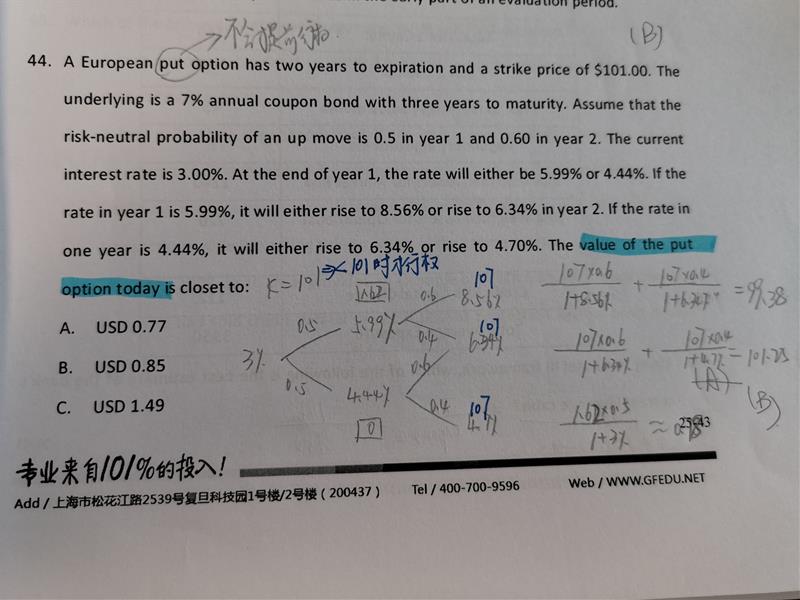 an evaluation period.
不会提前行权.
(B)
44. A European put option has two years to expiration and a strike price of $101.00. The
underlying is a 7% annual coupon bond with three years to maturity. Assume that the
risk-neutral probability of an up move is 0.5 in year 1 and 0.60 in year 2. The current
interest rate is 3.00%. At the end of year 1, the rate will either be 5.99% or 4.44%. If the
rate in year 1 is 5.99%, it will either rise to 8.56% or rise to 6.34% in year 2. If the rate in
one year is 4.44%, it will either rise to 6.34% or rise to 4.70%. The value of the put
option today is closet to:
K=101 101时行权
A. USD 0.77
B. USD 0.85
C. USD 1.49
3%
0.5
0.5
1.62
5.99%
4.44%
0
0.6
0.4
0.6
0.4
107
8.56%
107
6.34%
107
4.7%
107×0.6 / 1+8.56% + 107×0.4 / 1+6.34% = 99.38
107×0.6 / 1+6.34% + 107×0.4 / 1+4.7% = 101.25
(A)
(B)
1.62×0.5 / 1+3% ≈
25-43
专业来自101%的投入!
Add / 上海市松花江路2539号复旦科技园1号楼/2号楼（200437） Tel / 400-700-9596 Web / WWW.GFEDU.NET